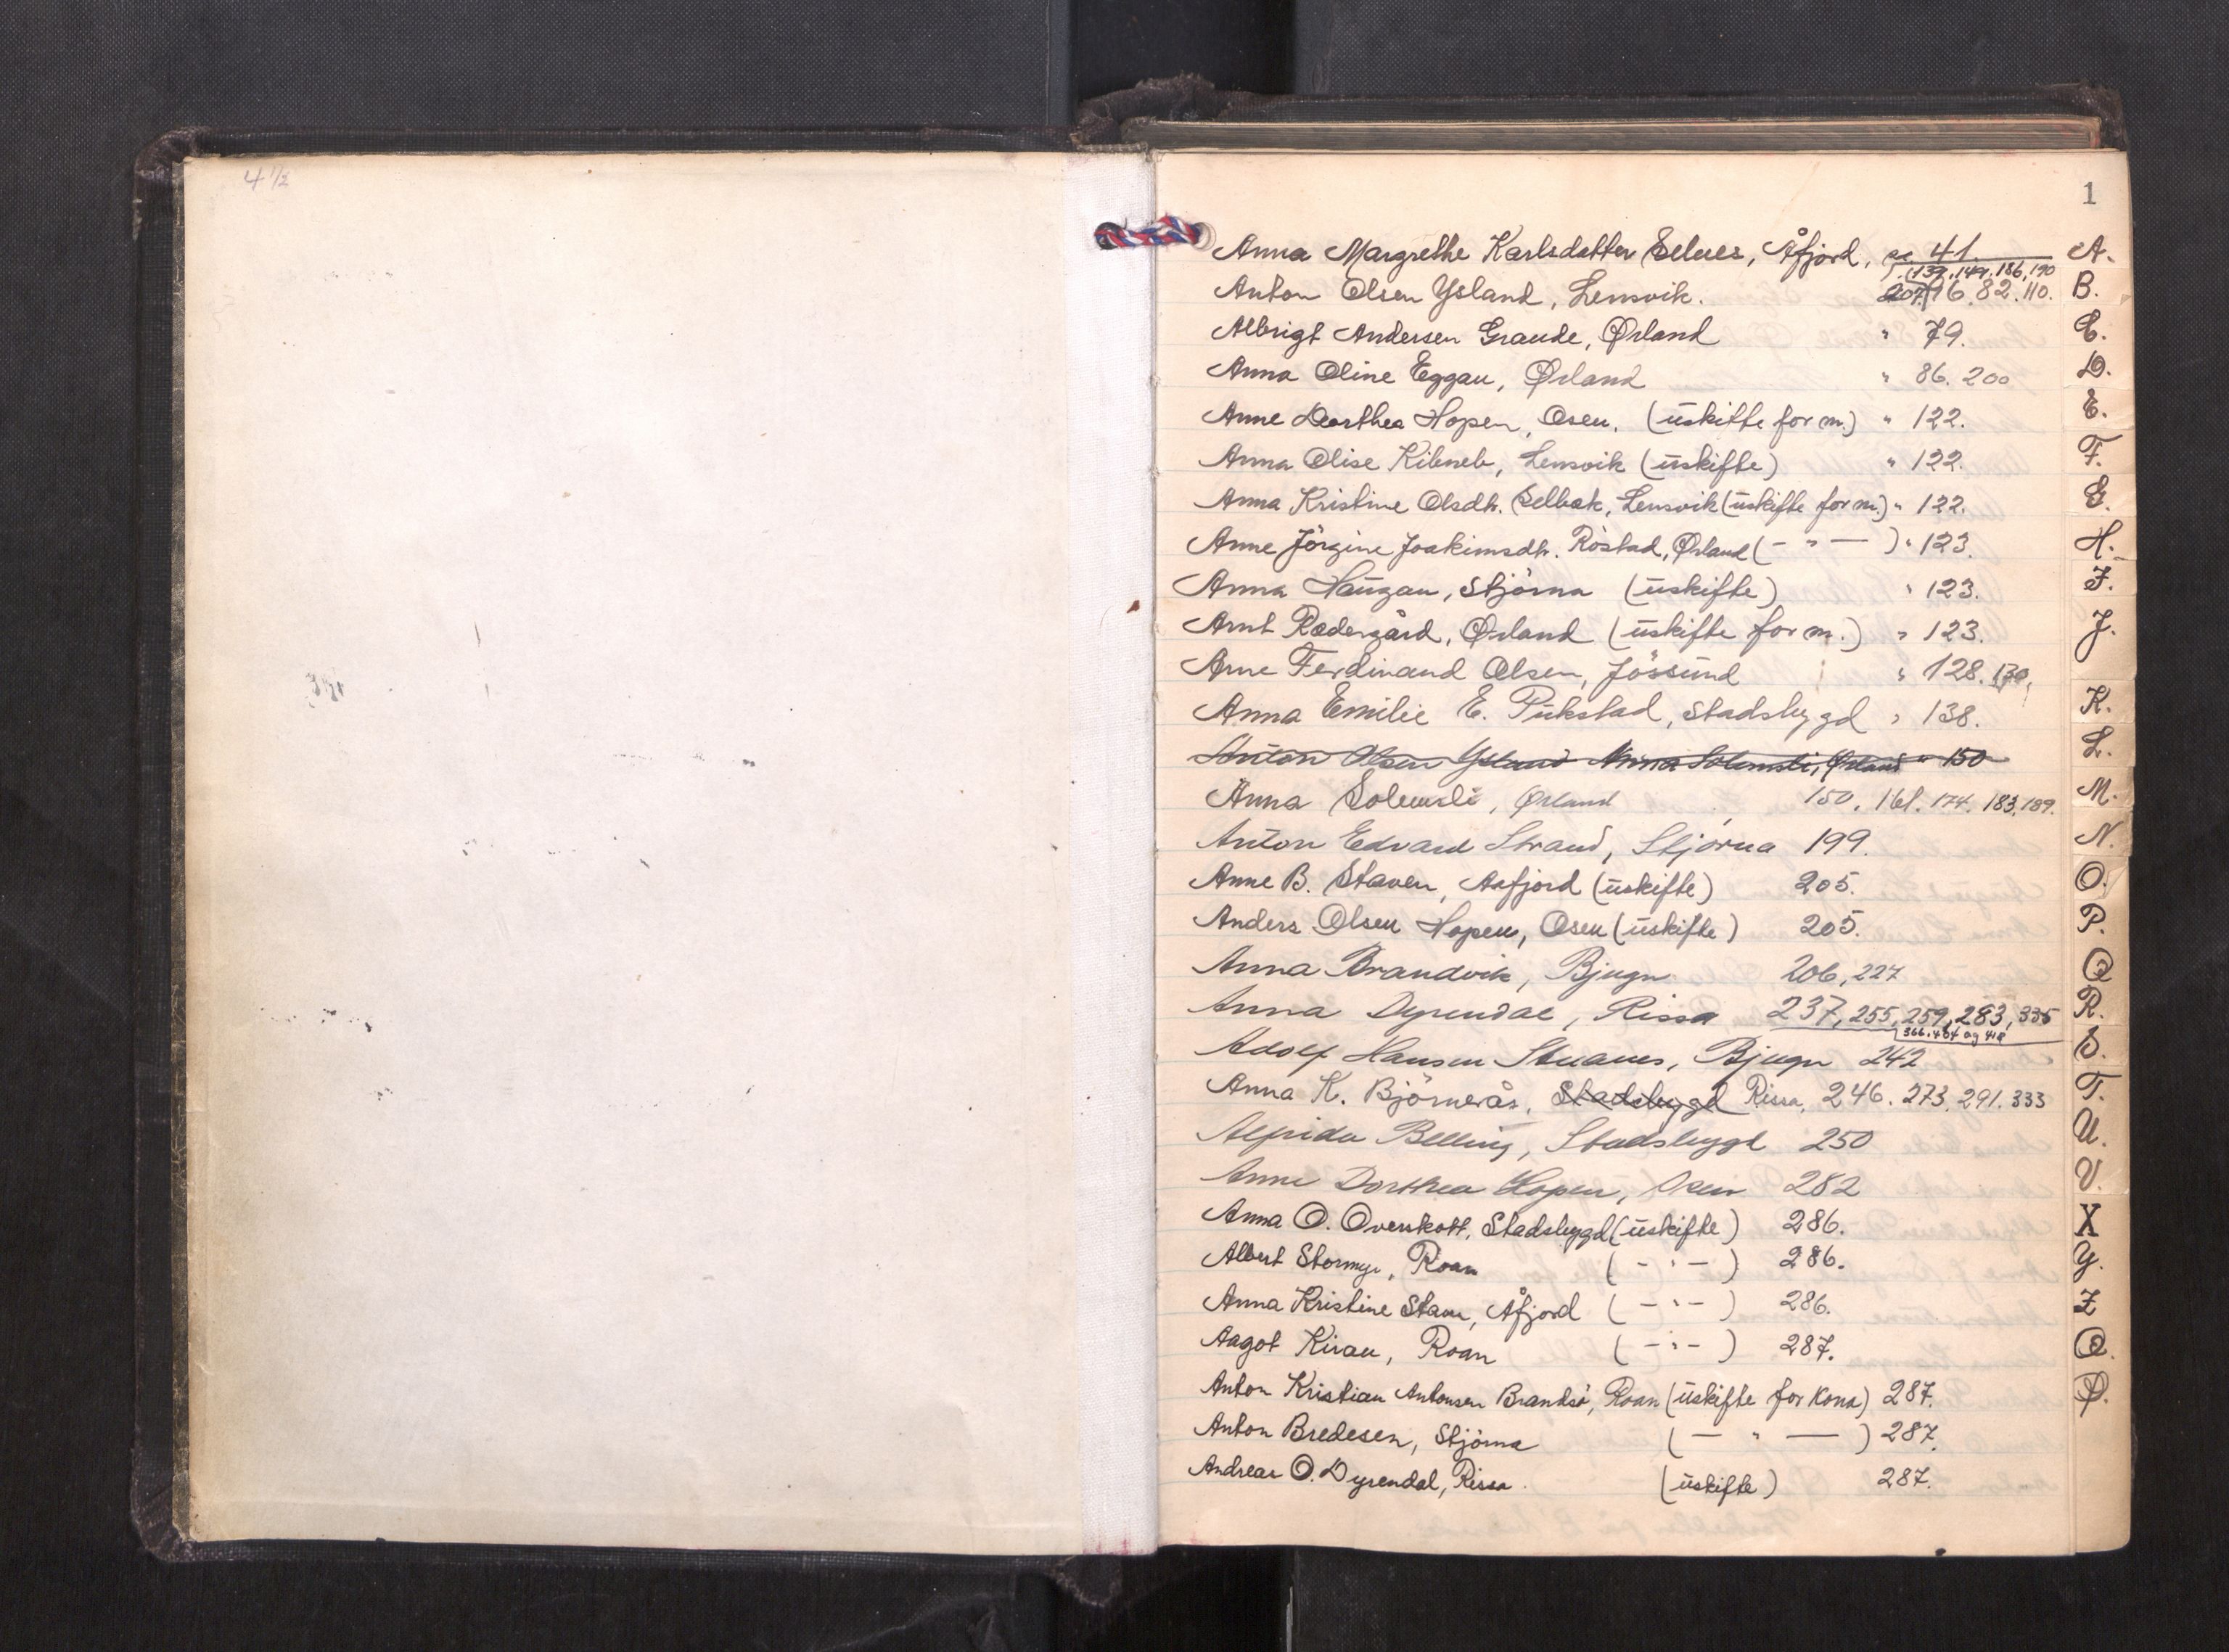 4 1/2
1
Anna Margrethe Karlsdatter Selnes, Åfjord, pag. 41.
139, 149, 186, 190
Anton Olsen Ysland, Lensvik. 207, 16. 82. 110.
Albrigt Andersen Grande, Ørland " 79.
Anna Oline Eggan, Ørland " 86. 200
Anne Dorthea Hopen, Osen, (uskifte for m.) " 122.
Anna Olise Lensvik (uskifte) " 122.
Anna Kristine Olsdtr. Selbak, Lensvik (uskifte for m.) " 122.
Anne Jörgine Joakimsdtr. Röstad, Ørland (- " -) " 123.
Anna Haugan, Stjörna (uskifte) " 123.
Arnt Rædergård, Ørland (uskifte for m.) " 123.
Arne Ferdinand Olsen, Jössund " 128. 130,
Anna Emilie E. Pukstad, Stadsbygd " 138.
Anton Olsen Ysland Anna Solemsli, Ørland " 150
Anna Solemsli, Ørland 150. 161. 174. 183. 189.
Anton Edvard Strand, Stjörna 199.
Anne B. Staven, Aafjord (uskifte) 205.
Anders Olsen Hopen, Osen (uskifte) 205.
Anna Brandvik, Bjugn 206, 227
Anna Dyrendal, Rissa 237, 255, 259, 283, 335
366. 404 og 418
Adolf Hansen Stuanes, Bjugn 242
Anna K. Björnerås, Stadsbygd Rissa, 246. 273. 291. 333
Alfrida Belling, Stadsbygd 250
Anne Dorthea Hopen, Osen 282
Anna O. Overskott, Stadsbygd (uskifte) 286.
Albert Stormyr, Roan (- " -) 286.
Anna Kristine Stavn, Åfjord (- " -) 286.
Aagot Kiran, Roan (- " -) 287.
Anton Kristian Antonsen Brandsö, Roan (uskifte for kona) 287.
Anton Bredesen, Stjörna (- " -) 287.
Andreas O. Dyrendal, Rissa. (uskifte) 287.
A.
B.
C.
D.
E.
F.
G.
H.
I.
J.
K.
L.
M.
N.
O.
P.
Q
R.
S.
T.
U.
V.
X
Y.
Z
Ø.